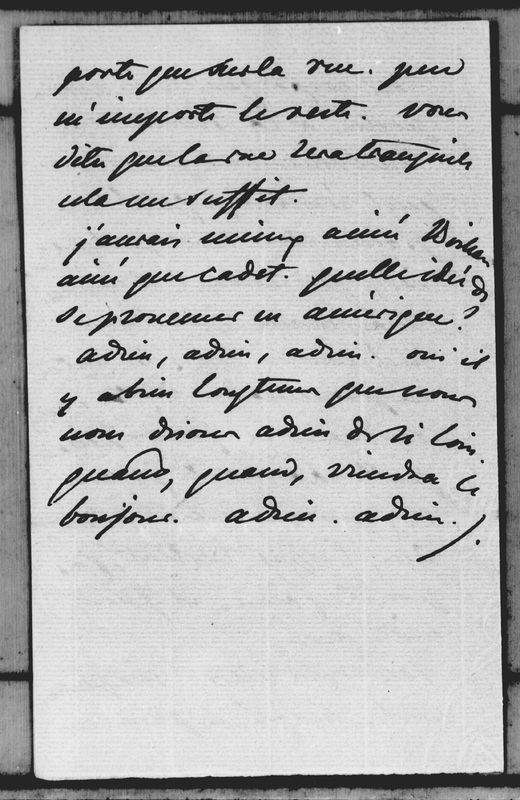 porte que sur la rue. peu
m'importe le reste. vous
dites que la rue sera tranquille
cela me suffit.
j'aurais mieux aimé
ainé que cadet. quelle idée de
se promener en amérique?
adieu, adieu, adieu. oui il
y a bien longtems que nous
nous disons adieu de si loin.
quand, quand, viendra le
bonjour. adieu. adieu.